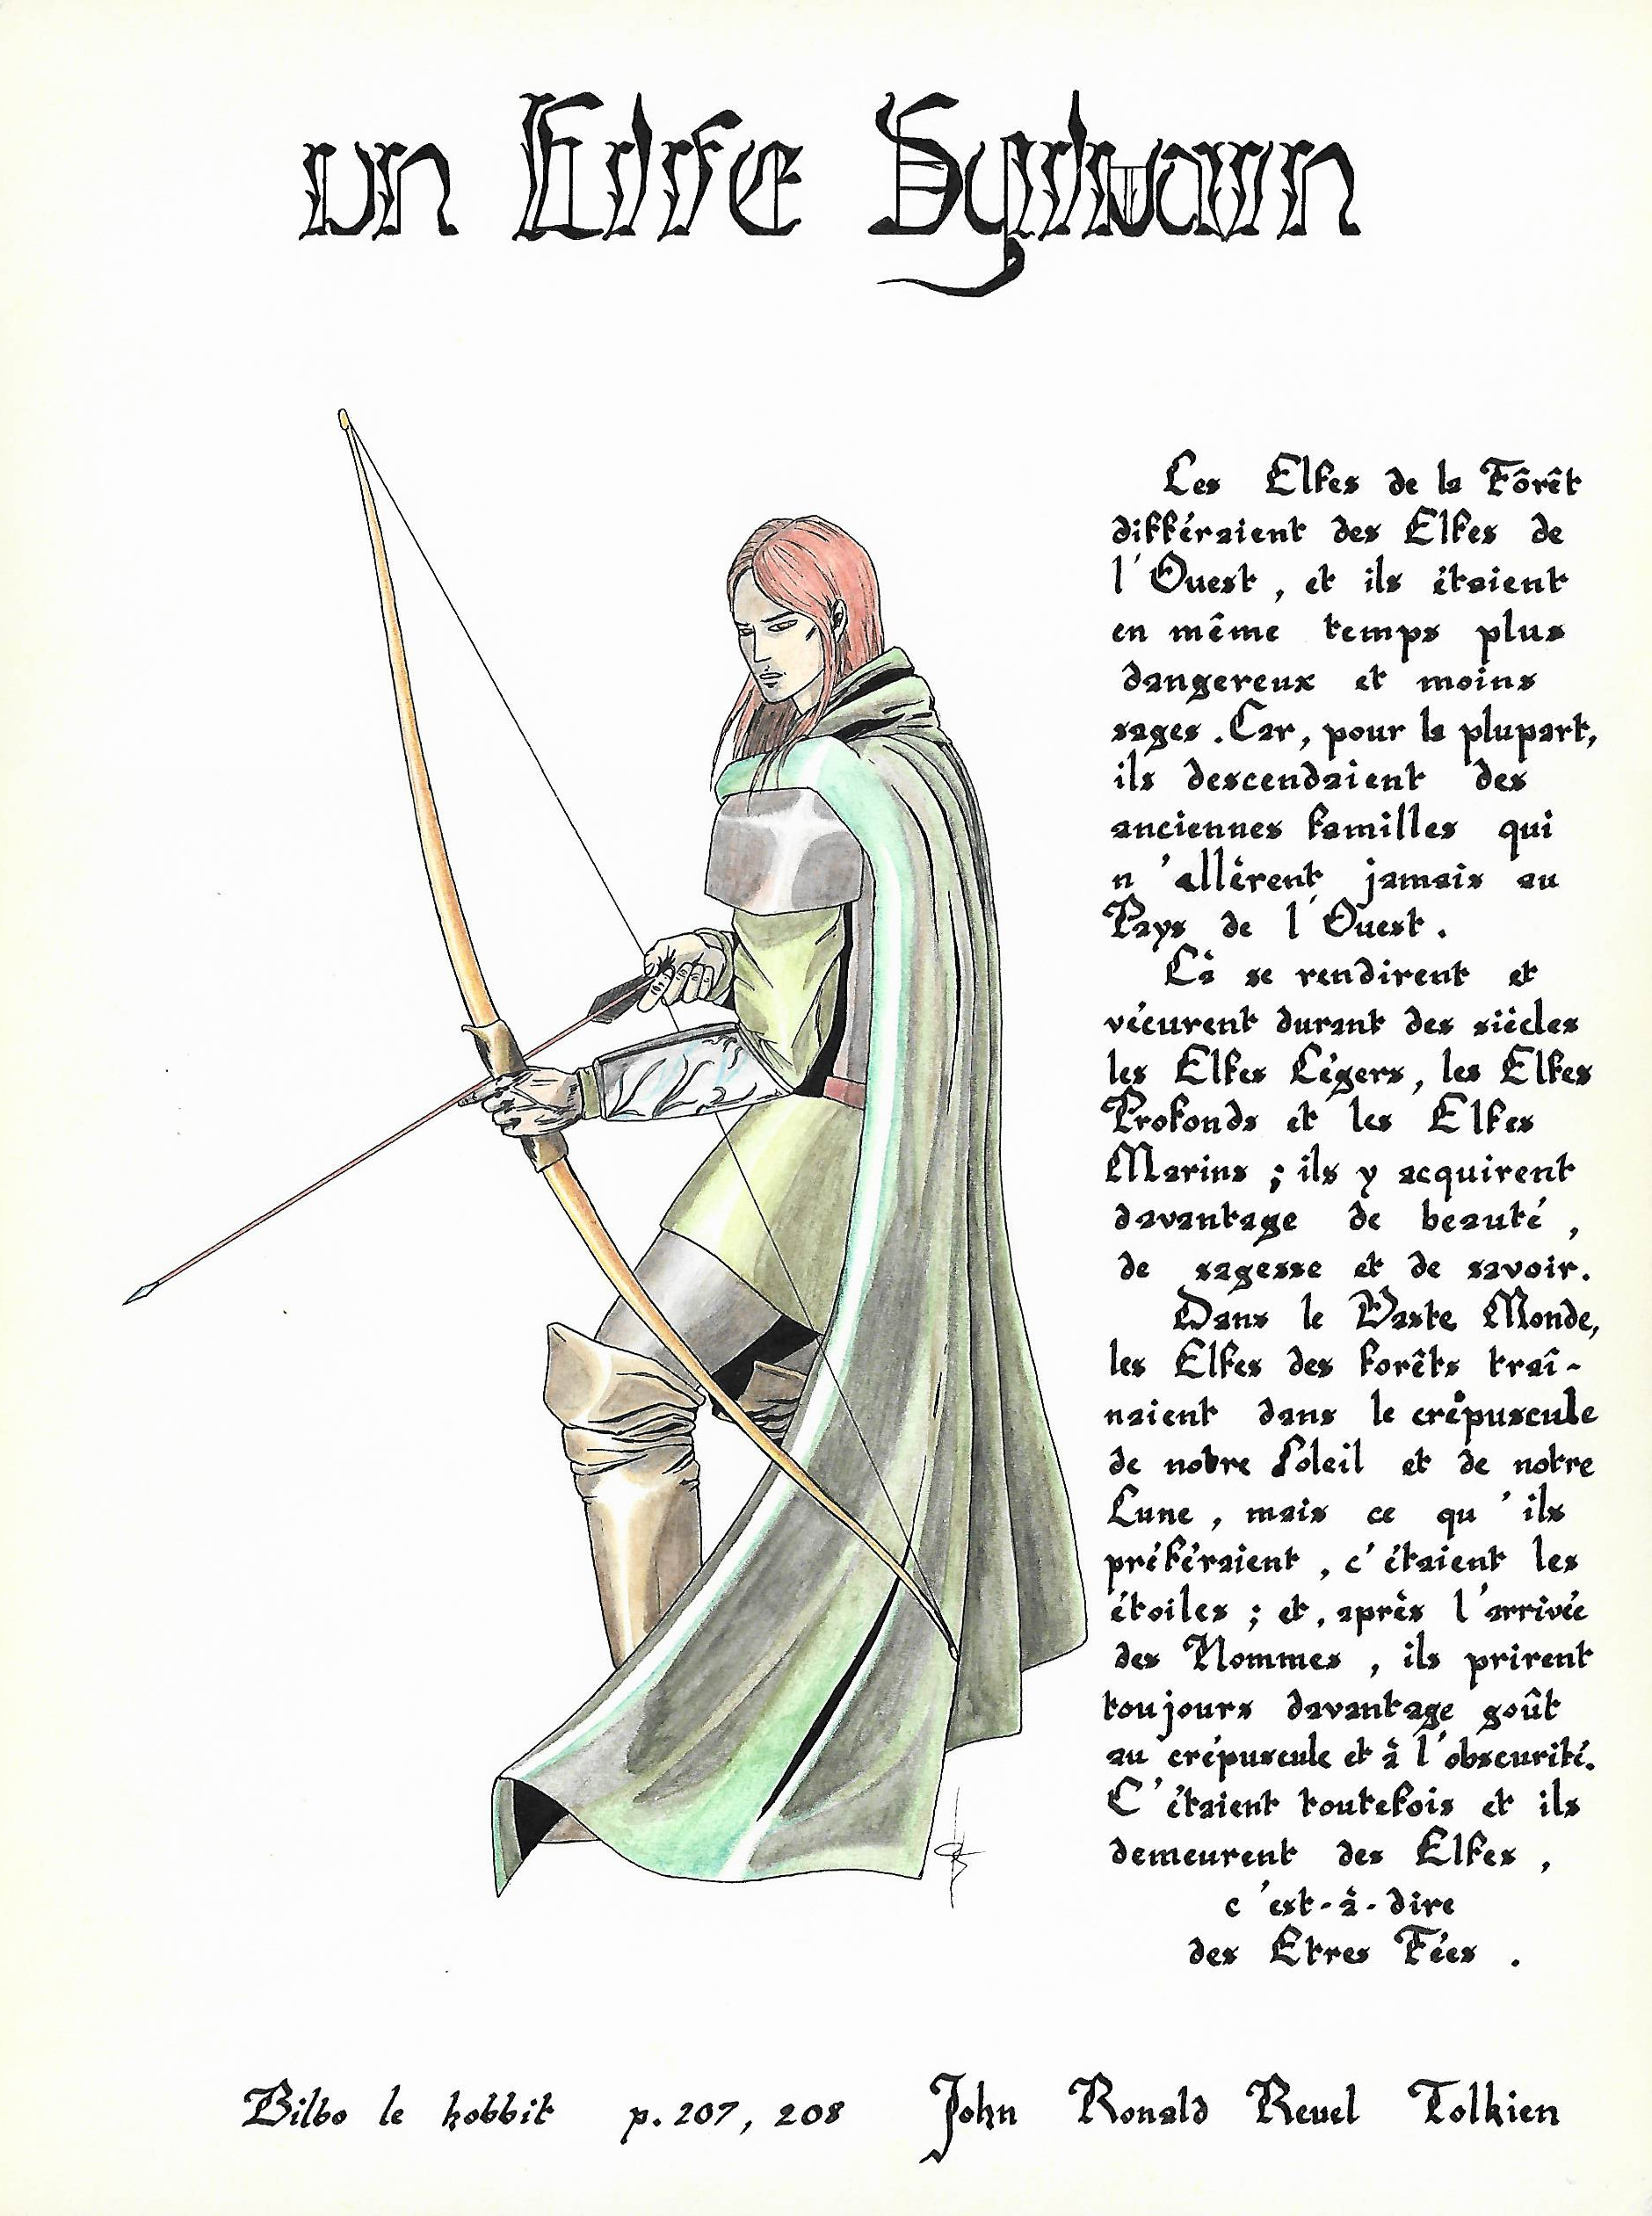 un Elfe Sylvain
Les Elfes de la Fôrêt
différaient des Elfes de
l'Ouest, et ils étaient
en même temps plus
dangereux et moins
sages. Car, pour la plupart,
ils descendaient des
anciennes familles qui
n'allèrent jamais au
Pays de l'Ouest.
Là se rendirent et
vécurent durant des siècles
les Elfes Légers, les Elfes
Profonds et les Elfes
Marins ; ils y acquirent
davantage de beauté,
de sagesse et de savoir.
Dans le Vaste Monde,
les Elfes des forêts traî-
naient dans le crépuscule
de notre Soleil et de notre
Lune, mais ce qu'ils
préféraient, c'étaient les
étoiles ; et, après l'arrivée
des Hommes, ils prirent
toujours davantage goût
au crépuscule et à l'obscurité.
C'étaient toutefois et ils
demeurent des Elfes,
c'est-à-dire
des Etres Fées.
Bilbo le hobbit p. 207, 208 John Ronald Reuel Tolkien